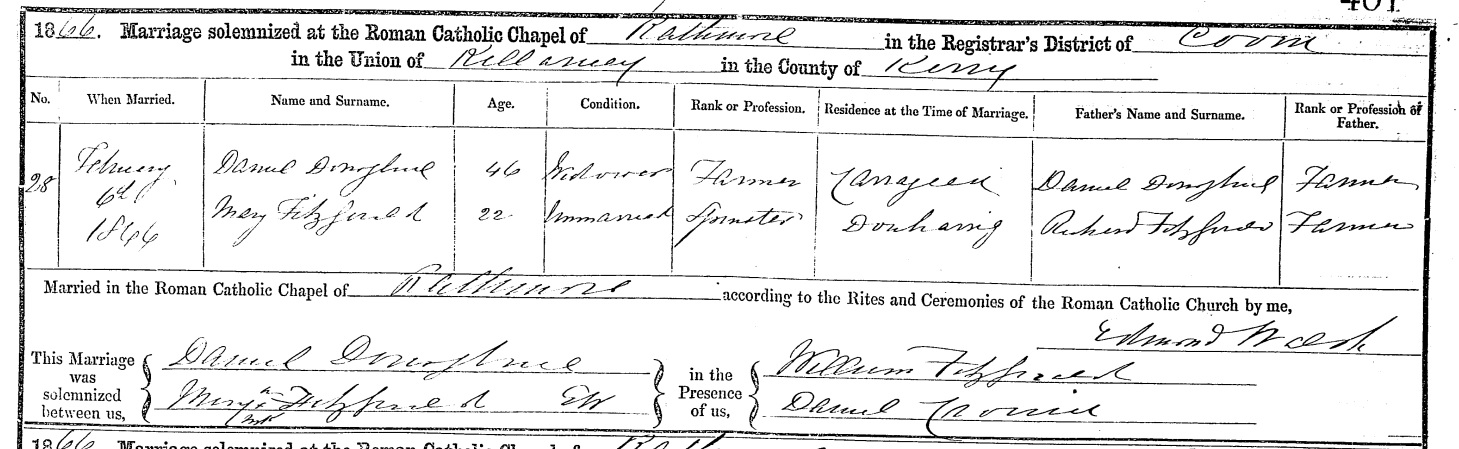 401
1866. Marriage solemnized at the Roman Catholic Chapel of Rathmore in the Registrar's District of Coom
in the Union of Killarney in the County of Kerry
No. When Married. Name and Surname. Age. Condition. Rank or Profession. Residence at the Time of Marriage. Father's Name and Surname. Rank or Profession of Father.
28 February 6th 1866 Daniel Donoghue 46 Widower Farmer Daniel Donoghue Farmer
Mary Fitzgerald 22 Unmarried Spinster Richard Fitzgerald Farmer
Married in the Roman Catholic Chapel of Rathmore according to the Rites and Ceremonies of the Roman Catholic Church by me,
Edmond Walsh
This Marriage was solemnized between us, Daniel Donoghue
Mary Fitzgerald
in the Presence of us, William Fitzgerald
Daniel Cronin
1866 Marriage solemnized at the Roman Catholic Chapel of